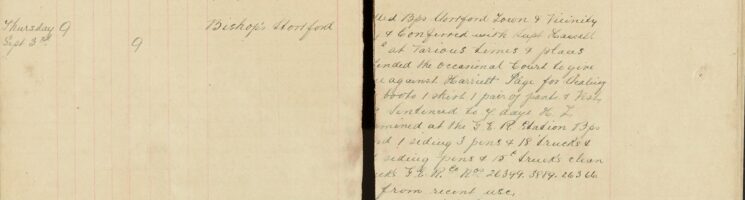 Thursday 9 Bishop's Stortford
Sept 3rd 9
ted Bps Stortford Town & Vicinity
& Conferred with Supt
at Various times & places
ended the Occasional Court to give
against Harriett Page for Stealing
boots 1 skirt 1 pair of pants & Vest
Sentenced to 7 days H. L.
mined at the G. E. R. Station Bps
1 siding 3 pens & 18 trucks &
siding pens & 15 trucks clean
G. E. R. Co Nos. 26349. 3819. 26366
from recent use.